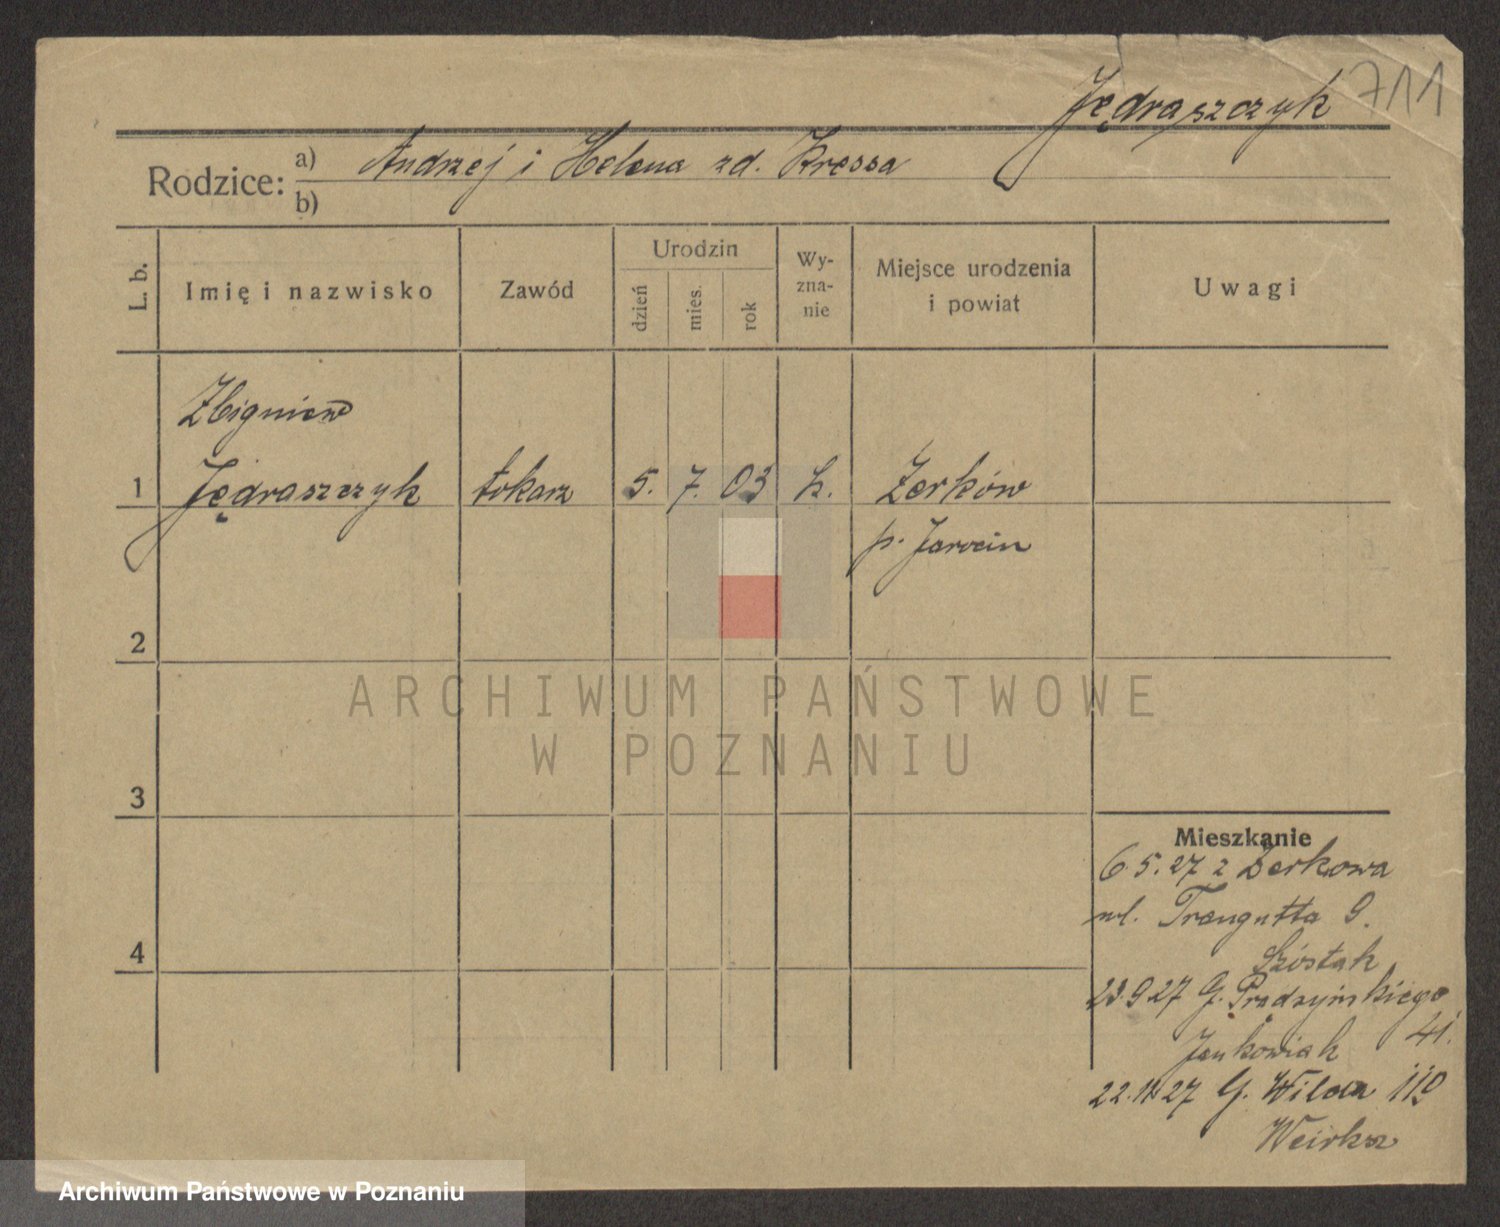 Jędraszczyk 711
Rodzice: a) Andrzej i Helena zd. Kressa
b)
L. b. Imię i nazwisko Zawód Urodzin dzień mies. rok Wy-zna-nie Miejsce urodzenia i powiat Uwagi
Zbigniew
1 Jędraszczyk tokarz 5. 7. 03 k. Żerków
p. Jarocin
2
ARCHIWUM PAŃSTWOWE
W POZNANIU
3
Mieszkanie
6.5.27 z Żerkowa
ul. Traugutta 9.
Szóstak
23.9.27 G. Prądzyńskiego
41.
Jankowiak
22.11.27 G. Wilda 110
4
Archiwum Państwowe w Poznaniu